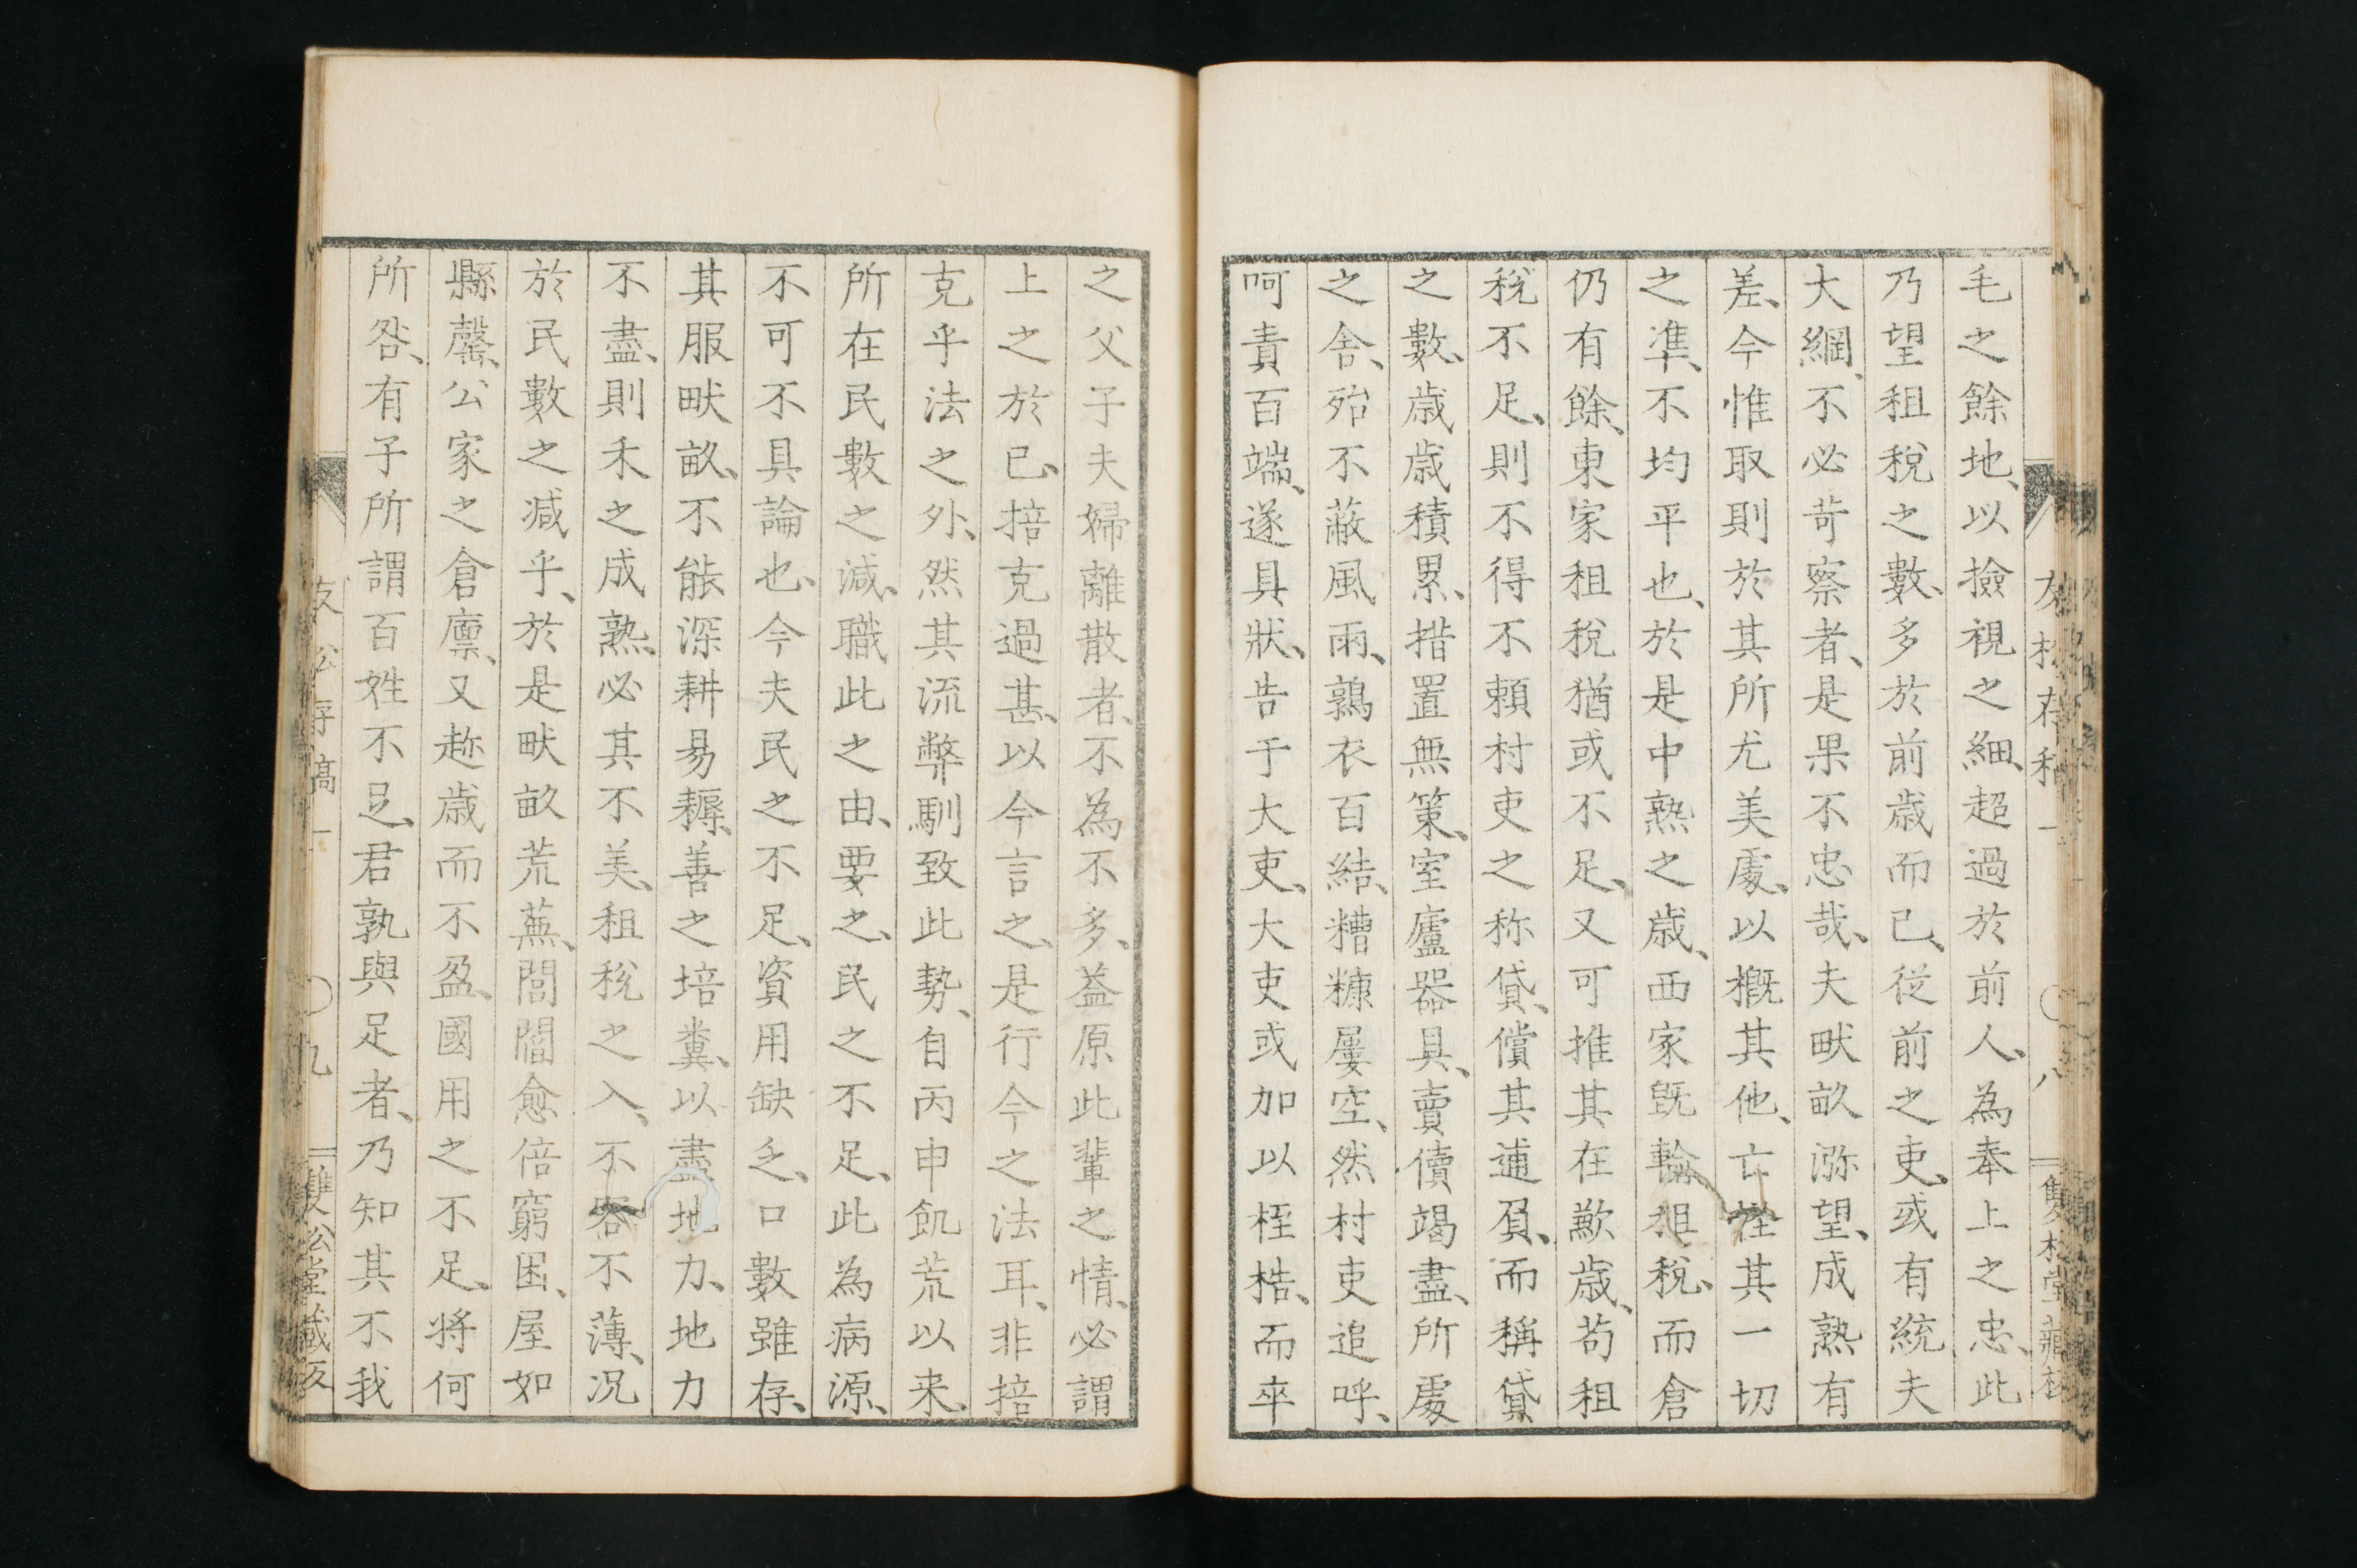 毛之餘地、以撿視之細、超過於前人、為奉上之忠、此
乃望租税之數、多於前歳而已、従前之吏、或有統夫
大綱、不必苛察者、是果不忠哉、夫畎畝沵望、成熟有
差、今惟取則於其所尤美處、以概其他、亡徃其一切
之準、不均平也、於是中熟之歳、西家既輸租税、而倉
仍有餘、東家租税猶或不足、又可推其在歉歳、苟租
税不足、則不得不頼村吏之称貸、償其逋負、而稱貸
之數、歳歳積累、措置無策、室廬器具、賣儥竭盡、所處
之舎、殆不蔽風雨、鶉衣百結、糟糠屢空、然村吏追呼、
呵責百端、遂具狀、告于大吏、大吏或加以桎梏、而卒
之父子夫婦離散者、不為不多、葢原此輩之情、必謂
上之於已、掊克過甚、以今言之、是行今之法耳、非掊
克乎法之外、然其流弊馴致此勢、自丙申飢荒以来、
所在民數之減、職此之由、要之、民之不足、此為病源、
不可不具論也、今夫民之不足、資用缺乏、口數雖存、
其服畎畝、不能深耕易耨、善之培糞、以盡地力、地力
不盡、則禾之成熟、必其不美、租税之入、不容不薄、况
於民數之減乎、於是畎畝荒蕪、閭閻愈倍窮困、屋如
縣罄、公家之倉廩、又趂歳而不盈、國用之不足、将何
所咎、有子所謂百姓不足、君孰與足者、乃知其不我
友松存稿 一 〇八 雙松堂藏板
友松存稿 一 〇九 雙松堂藏板